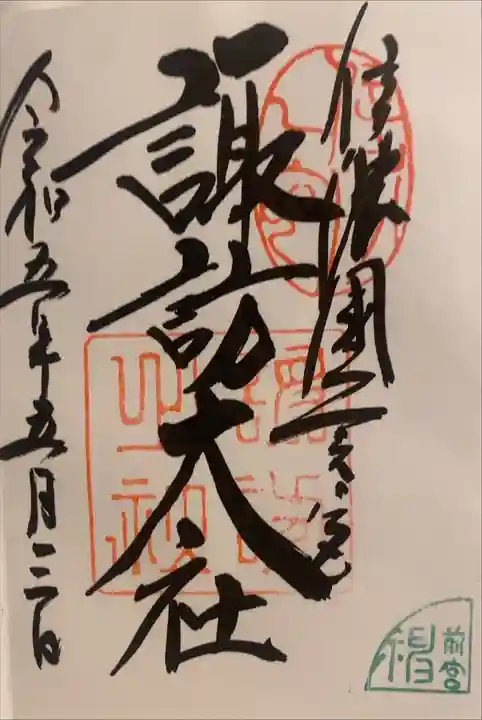 信濃國一之宮
諏訪大社
令和五年五月三日
前宮
楊